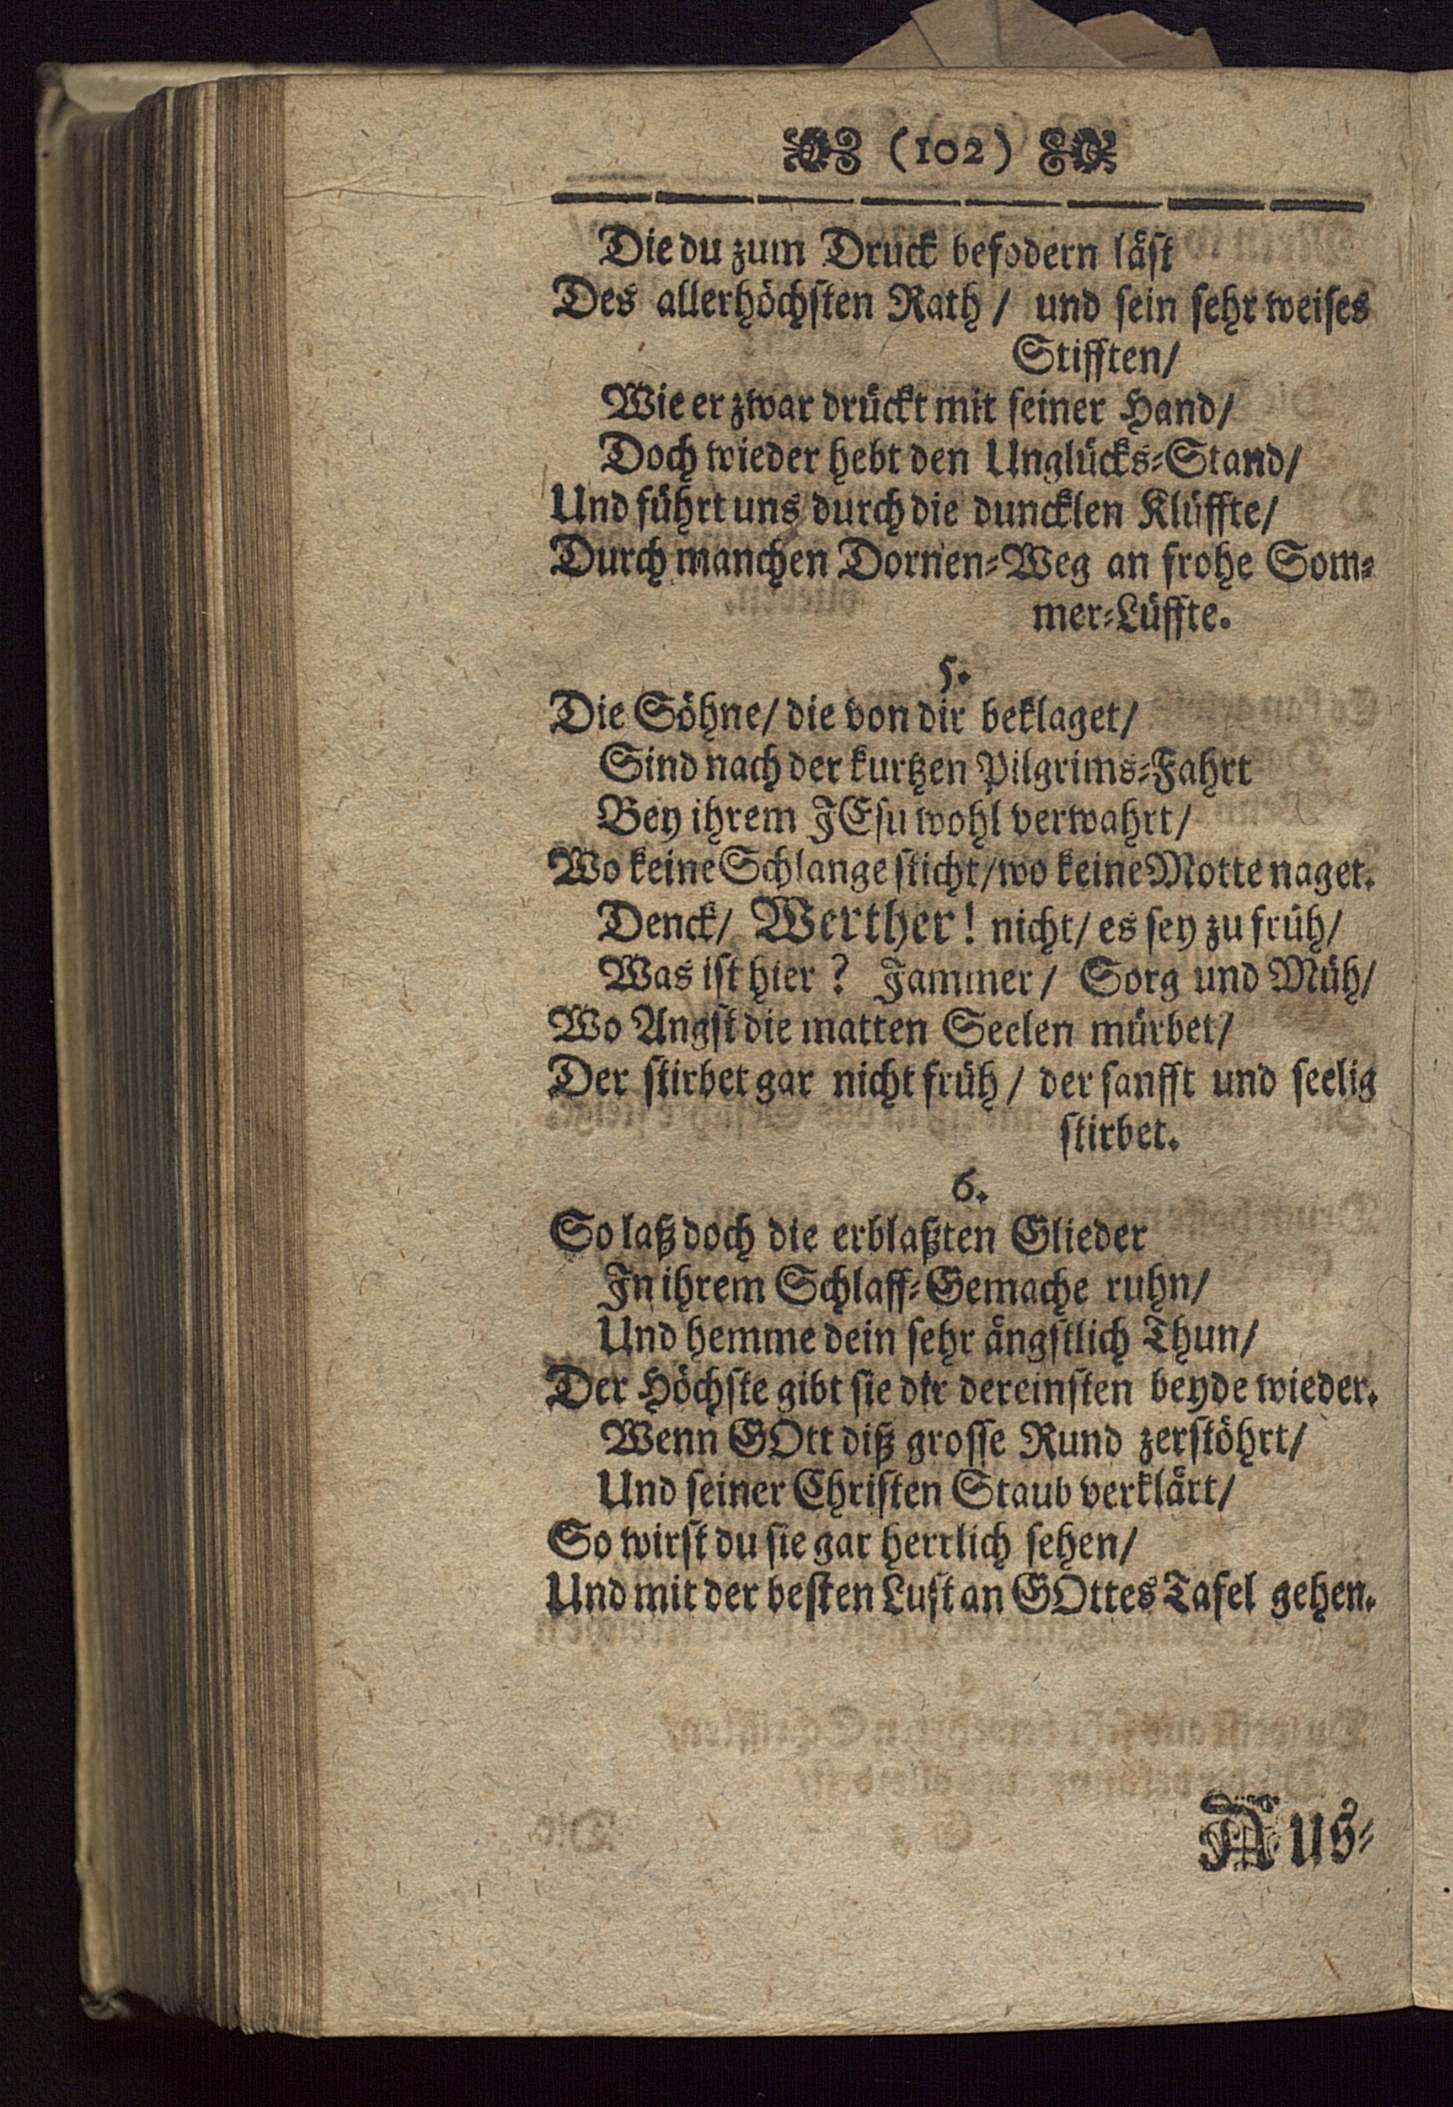 (102)
Die du zum Druck befodern läst
Des allerhöchsten Rath / und sein sehr weises
Stifften/
Wie er zwar drückt mit seiner Hand/
Doch wieder hebt den Unglücks-Stand/
Und führt uns durch die duncklen Klüffte/
Durch manchen Dornen-Weg an frohe Som-
mer-Lüffte.
5.
Die Söhne/ die von dir beklaget/
Sind nach der kurtzen Pilgrims-Fahrt
Bey ihrem JEsu wohl verwahrt/
Wo keine Schlange sticht/wo keine Motte naget.
Denck/ Werther! nicht/ es sey zu früh/
Was ist hier? Jammer/ Sorg und Müh/
Wo Angst die matten Seelen mürbet/
Der stirbet gar nicht früh / der sanfft und seelig
stirbet.
6.
So laß doch die erblaßten Glieder
In ihrem Schlaff-Gemache ruhn/
Und hemme dein sehr ängstlich Thun/
Der Höchste gibt sie dir dereinsten beyde wieder.
Wenn GOtt diß grosse Rund zerstöhrt/
Und seiner Christen Staub verklärt/
So wirst du sie gar herrlich sehen/
Und mit der besten Lust an GOttes Tafel gehen.
Aus-